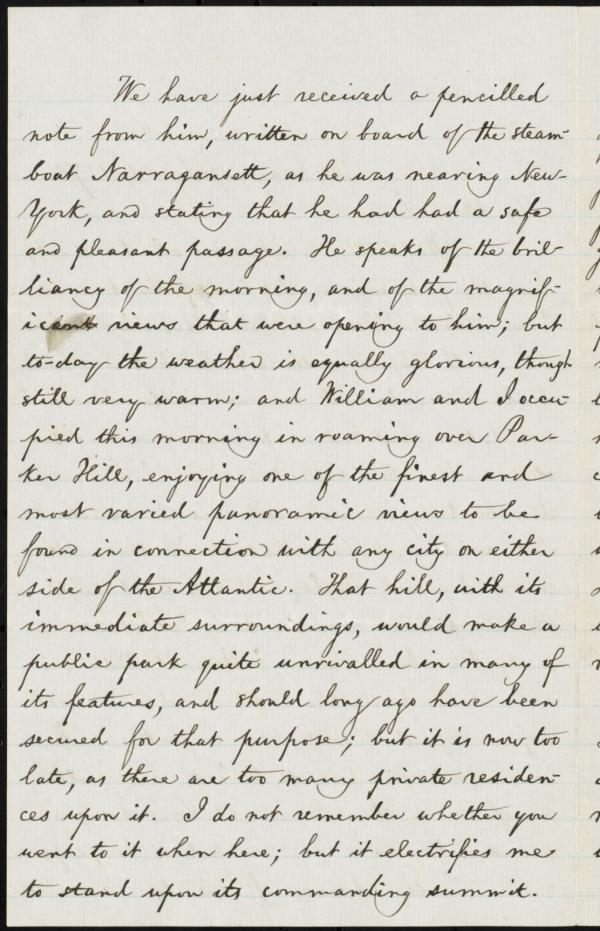 We have just received a pencilled
note from him, written on board of the steam-
boat Narragansett, as he was nearing New-
York, and stating that he had had a safe
and pleasant passage. He speaks of the bril-
liancy of the morning, and of the magnif-
icent views that were opening to him; but
to-day the weather is equally glorious, though
still very warm; and William and I occu-
pied this morning in roaming over Par-
ker Hill, enjoying one of the finest and
most varied panoramic views to be
found in connection with any city on either
side of the Atlantic. That hill, with its
immediate surroundings, would make a
public park quite unrivalled in many of
its features, and should long ago have been
secured for that purpose; but it is now too
late, as there are too many private residen-
ces upon it. I do not remember whether you
went to it when here; but it electrifies me
to stand upon its commanding summit.